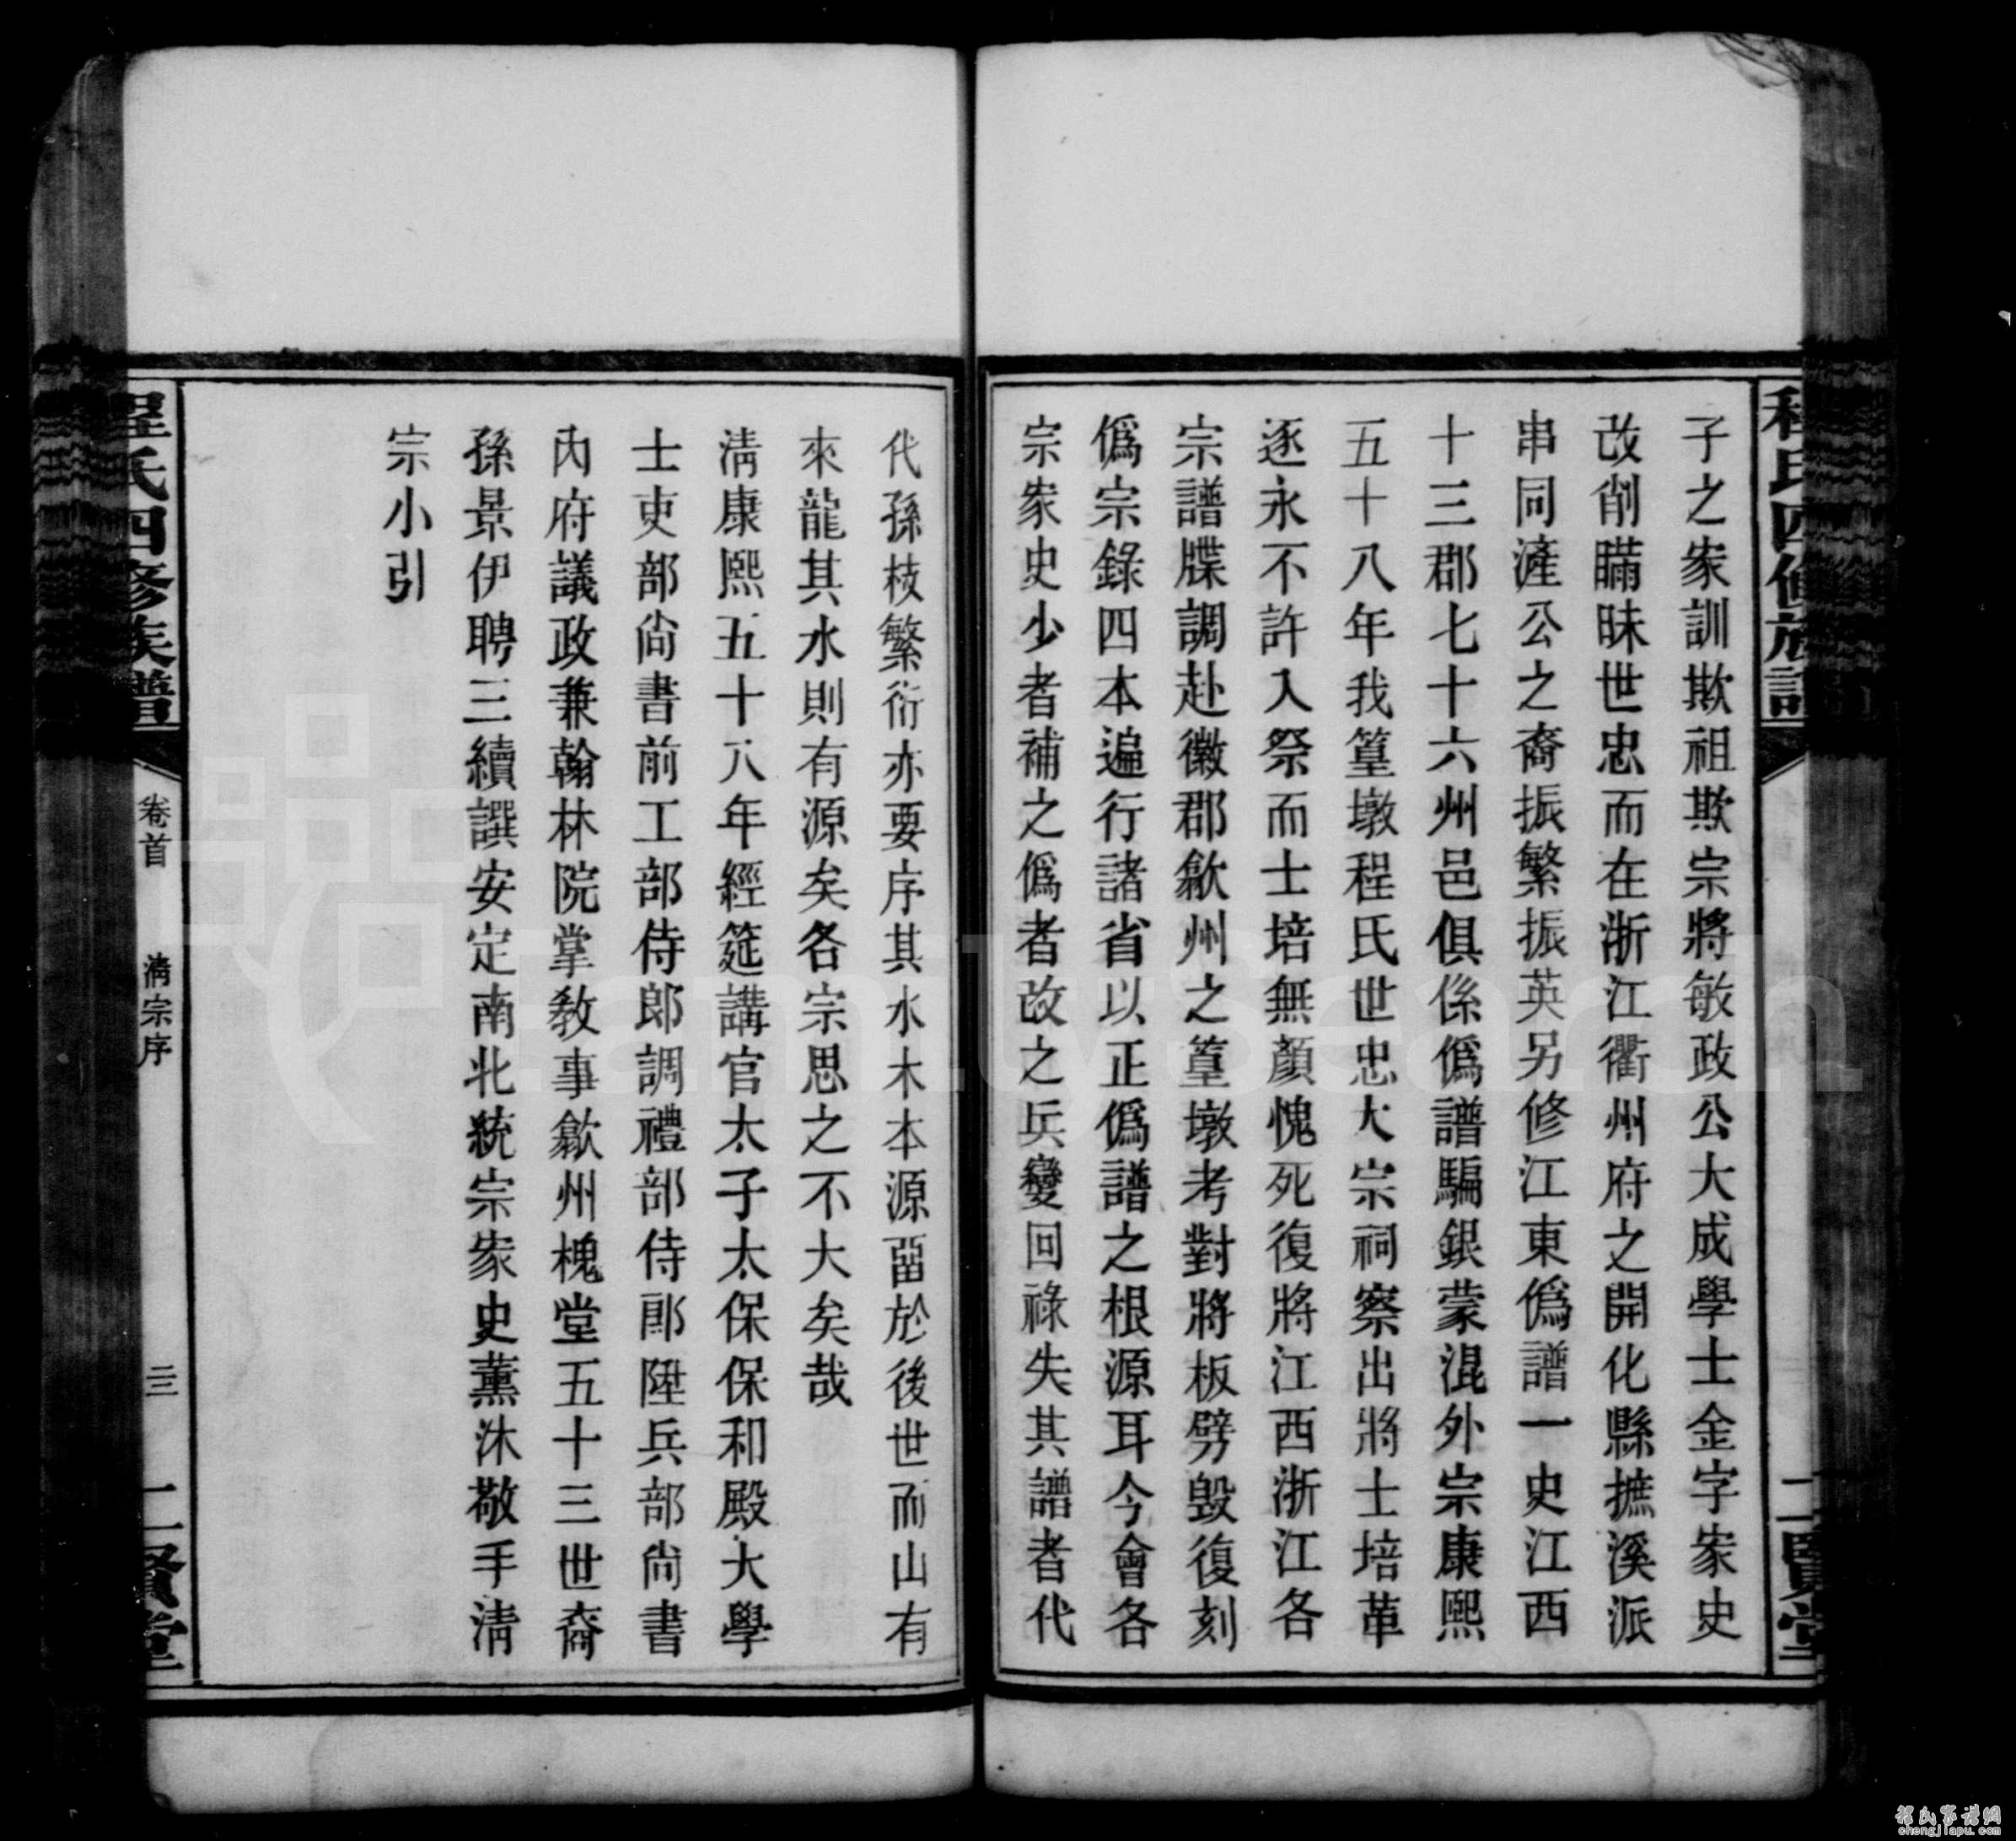 程氏四修族譜
二賢堂
子之家訓欺祖欺宗將敏政公大成學士金字家史
改削瞞昧世忠而在浙江衢州府之開化縣摭溪派
串同滻公之裔振繁振英另修江東僞譜一史江西
十三郡七十六州邑俱係僞譜騙銀蒙混外宗康熙
五十八年我篁墩程氏世忠大宗祠察出將士培革
逐永不許入祭而士培無顏愧死復將江西浙江各
宗譜牒調赴徽郡歙州之篁墩考對將板劈毀復刻
僞宗錄四本遍行諸省以正僞譜之根源耳今會各
宗家史少者補之僞者改之兵變回祿失其譜者代
代孫枝繁衍亦要序其水木本源畱於後世而山有
來龍其水則有源矣各宗思之不大矣哉
清康熙五十八年經筵講官太子太保保和殿大學
士吏部尚書前工部侍郎調禮部侍郎陞兵部尚書
內府議政兼翰林院掌教事歙州槐堂五十三世裔
孫景伊聘三續譔安定南北統宗家史薰沐敬手清
宗小引
程氏四修族譜
卷首
清宗序
三
二賢堂
FamilySearch
程氏家譜網
chengjiapu.com